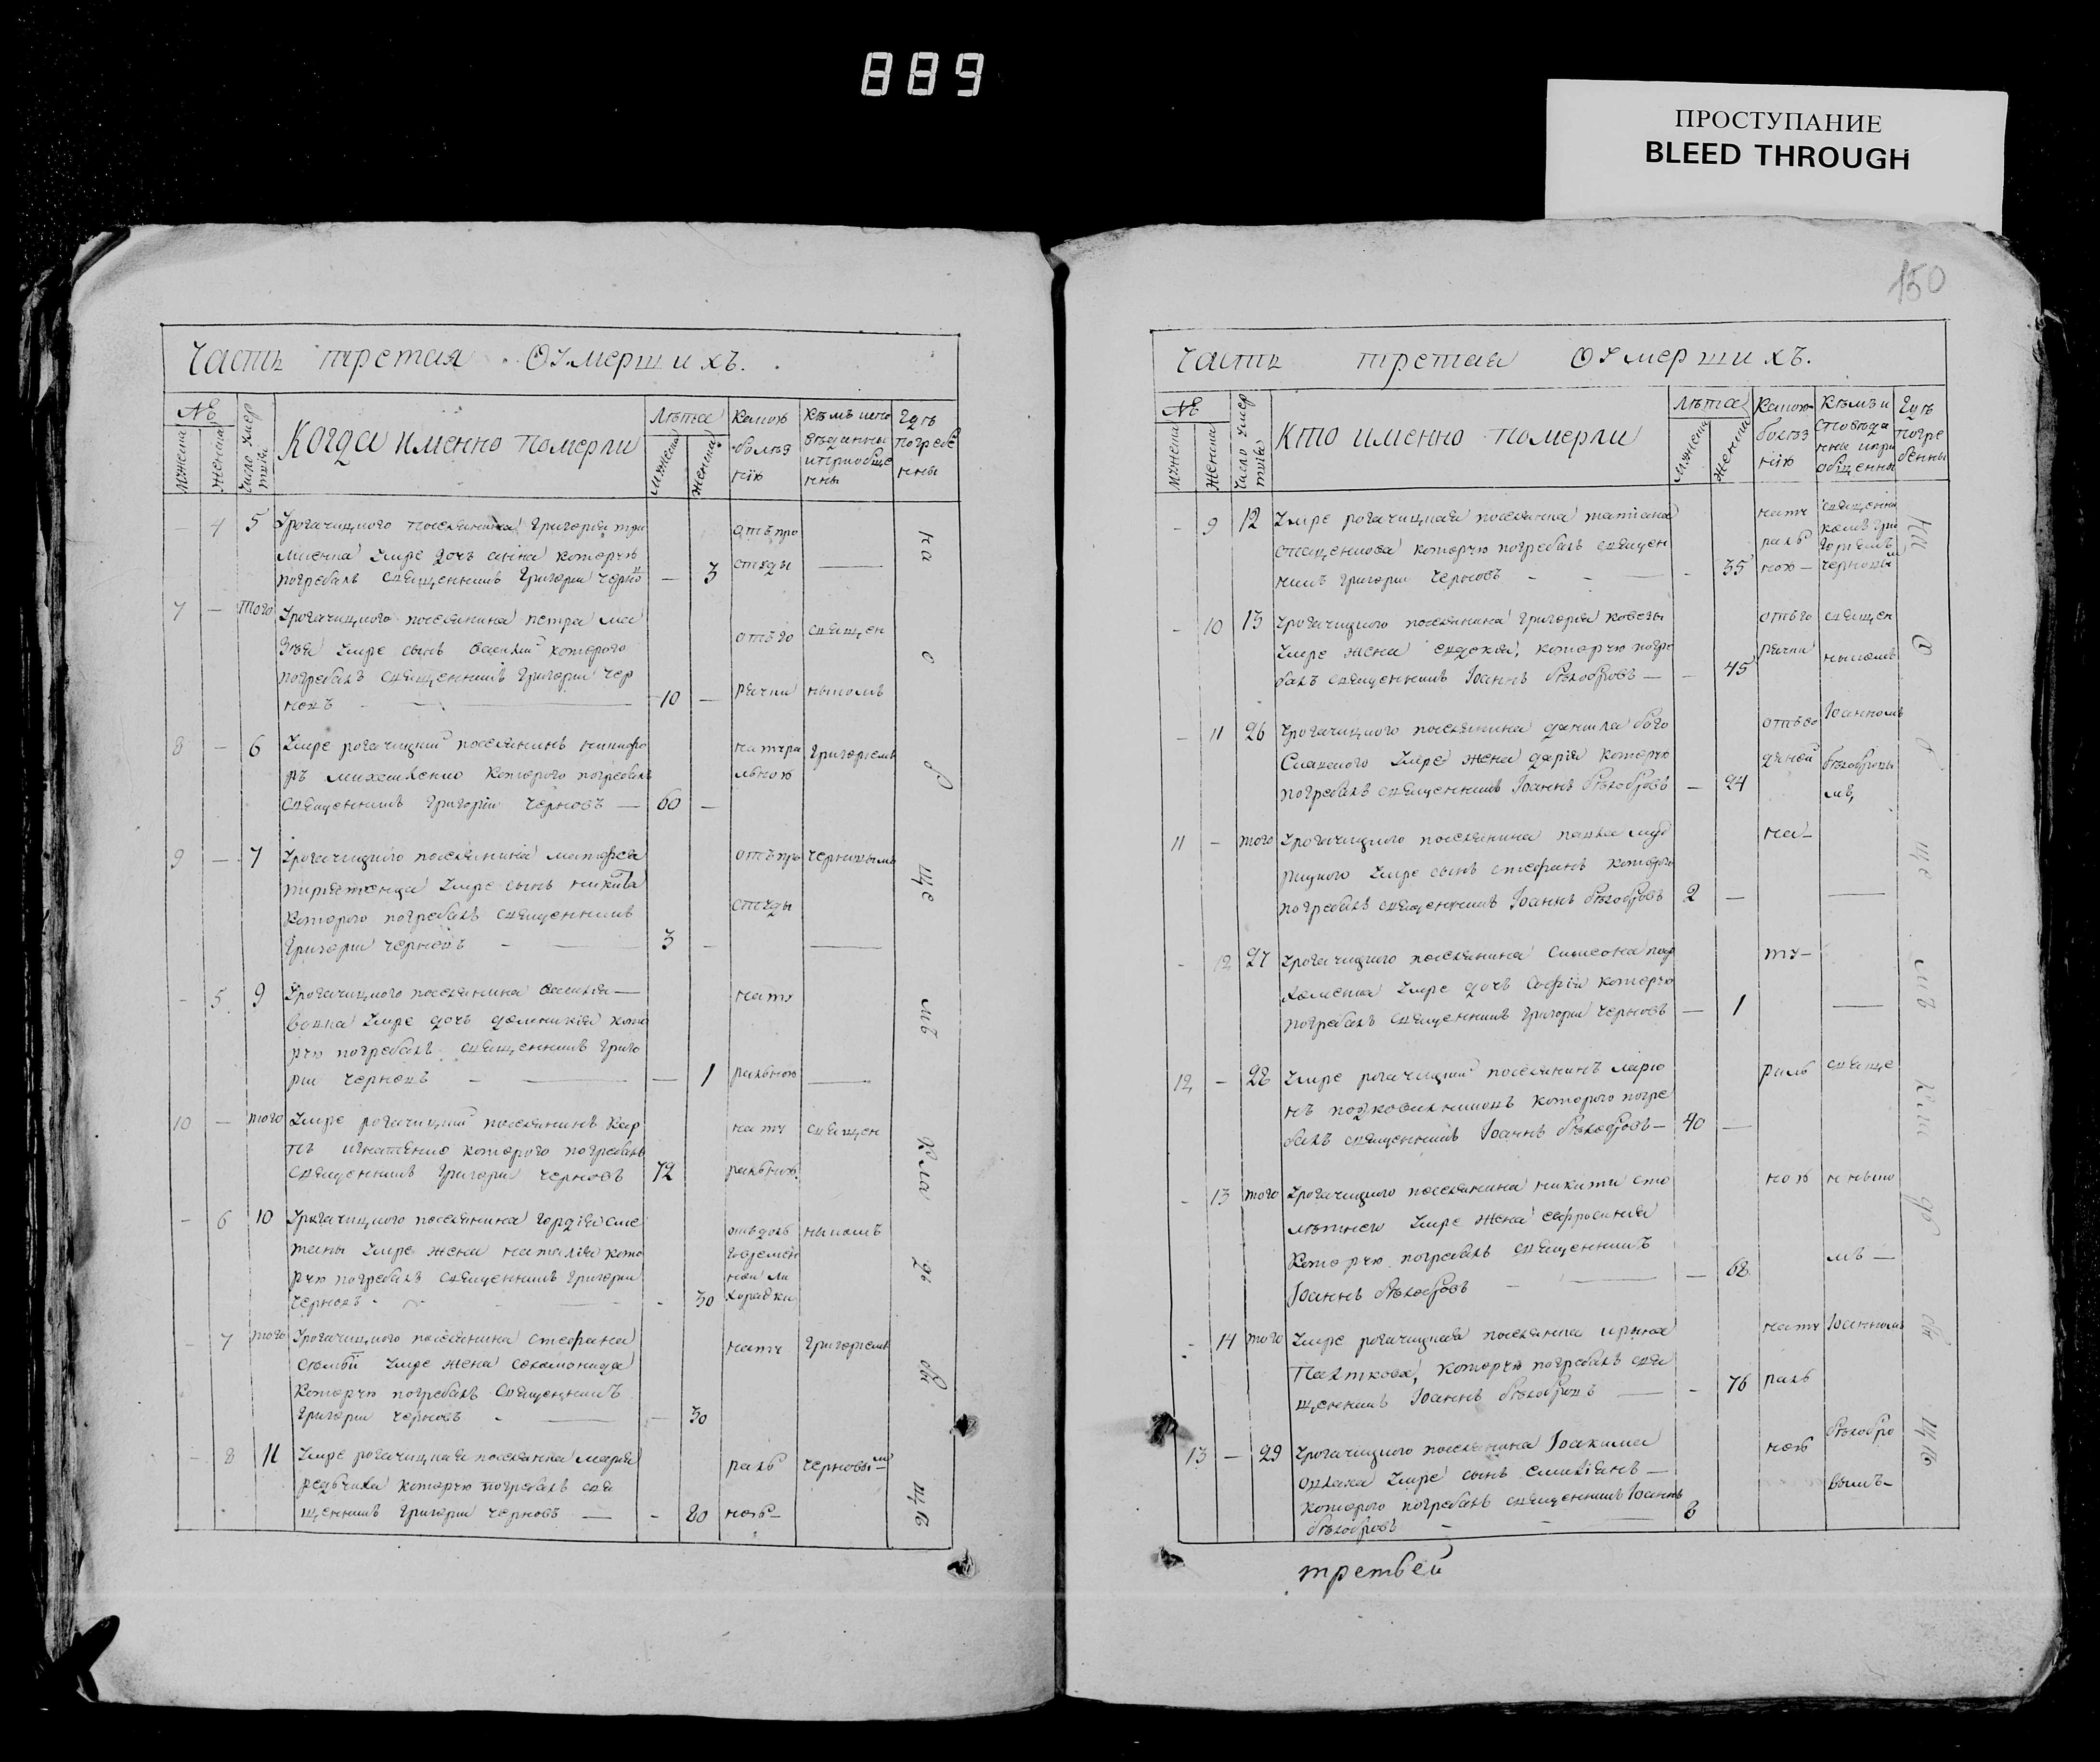 889
ПРОСТУПАНИЕ
BLEED THROUGH
150
Часть третая оумершихъ.
№
мужеска
женска
число умер
тви
Когда именно померли
лѣта
мужеска
женска
Какою
болѣз
нію
Кѣмъ испо
вѣданны
ипріобще
нны
Гдѣ
погребе
нны
4 5 Урогачицкого поселянина Григорія
умре дочь анна которую
погребалъ священникъ Григорій — 3
отъ про
студы —
7 — того Урогачицкого поселянина петра
умре сынъ василій которого
погребалъ священникъ Григорій чер
новъ — 10 —
отъ го
рячки
священ
никомъ
8 — 6 Умре рогачицкій поселянинъ никифо
ръ михайленко которого погребалъ
священникъ Григорій черновъ — 60 —
натура
льною
Григоріемъ
9 — 7 Урогачицкого поселянина матфея
умре сынъ
которого погребалъ священникъ
Григорій черновъ — 3 —
отъ про
студы
черновымъ
—
- 5 9 Урогачицкого поселянина василія —
умре дочь домникія кото
рую погребалъ священникъ Григо
рій черновъ — — 1
нату
ральною —
10 — того Умре рогачицкій поселянинъ кар
пъ игнатенко которого погребалъ
священникъ Григорій черновъ 72
нату
ральною
священ
- 6 10 Урогачицкого поселянина гордія сме
таны умре жена наталія кото
рую погребалъ священникъ Григорій
черновъ - — - 30
отъ долъ
говремен
ной ли
хорадки
никомъ
- 7 того Урогачицкого поселянина стефана
умре жена соломонида
которую погребалъ священникъ
Григорій черновъ - — — 30
нату
Григоріемъ
- 8 11 Умре рогачицкая поселянка марія
которую погребалъ свя
щенникъ Григорій черновъ — - 80
раль
ною —
черновым
на
о
б
ще
мъ
кла
дб
би
щѣ
Часть третая оумершихъ.
№
мужеска
женска
число умер
тви
Кто именно померли
лѣта
мужеска
женска
Какою
болѣз
нію
Кѣмъ и
споведа
нны ипри
общенны
Гдѣ
погре
бенны
- 9 12 Умре рогачицкая поселянка татіана
которую погребалъ священ
никъ Григорій черновъ - - — - 35
нату
раль
ною —
священни
комъ Гри
горіемъ
черновым
- 10 13 Урогачицкого поселянина Григорія
умре жена евдокія, которую погре
балъ священникъ Іоаннъ бѣлобровъ — - 45
отъ го
рячки
священ
никомъ
- 11 26 Урогачицкого поселянина данила бого
славского умре жена дарія которую
погребалъ священникъ Іоаннъ бѣлобровъ — 24
отъ во
дяной
Іоанномъ
бѣлобровы
мъ,
11 — того Урогачицкого поселянина павла
умре сынъ стефанъ которого
погребалъ священникъ Іоаннъ бѣлобровъ 2 —
на-
—
- 12 27 Урогачицкого поселянина симеона
умре дочь софія которую
погребалъ священникъ Григорій черновъ — 1
ту-
—
12 — 28 Умре рогачицкій поселянинъ ларіо
нъ которого погре
балъ священникъ Іоаннъ бѣлобровъ — 40 —
раль
свяще
- 13 того Урогачицкого поселянина никиты сто
лѣтнего умре жена евфросинія
которую погребалъ священникъ
Іоаннъ бѣлобровъ - — — 68
ною
ннико
мъ —
- 14 того Умре рогачицкая поселянка ирина
которую погребалъ свя
щенникъ Іоаннъ бѣлобровъ — - 76
нату
раль
Іоанномъ
13 — 29 Урогачицкого поселянина Іоакима
умре сынъ емиліанъ —
которого погребалъ священникъ Іоаннъ
бѣлобровъ - - — 8
ною
бѣлобро
вымъ-
на
о
б
ще
мъ
кла
дб
би
щѣ
третьей